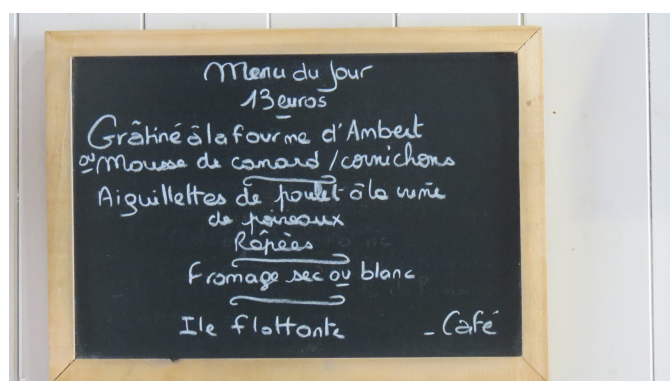 Menu du Jour
13 euros
Grâtiné à la fourme d'Ambert
ou Mousse de canard / cornichons
Aiguillettes de poulet à la
de poireaux
Râpées
Fromage sec ou blanc
Ile flottante - Café